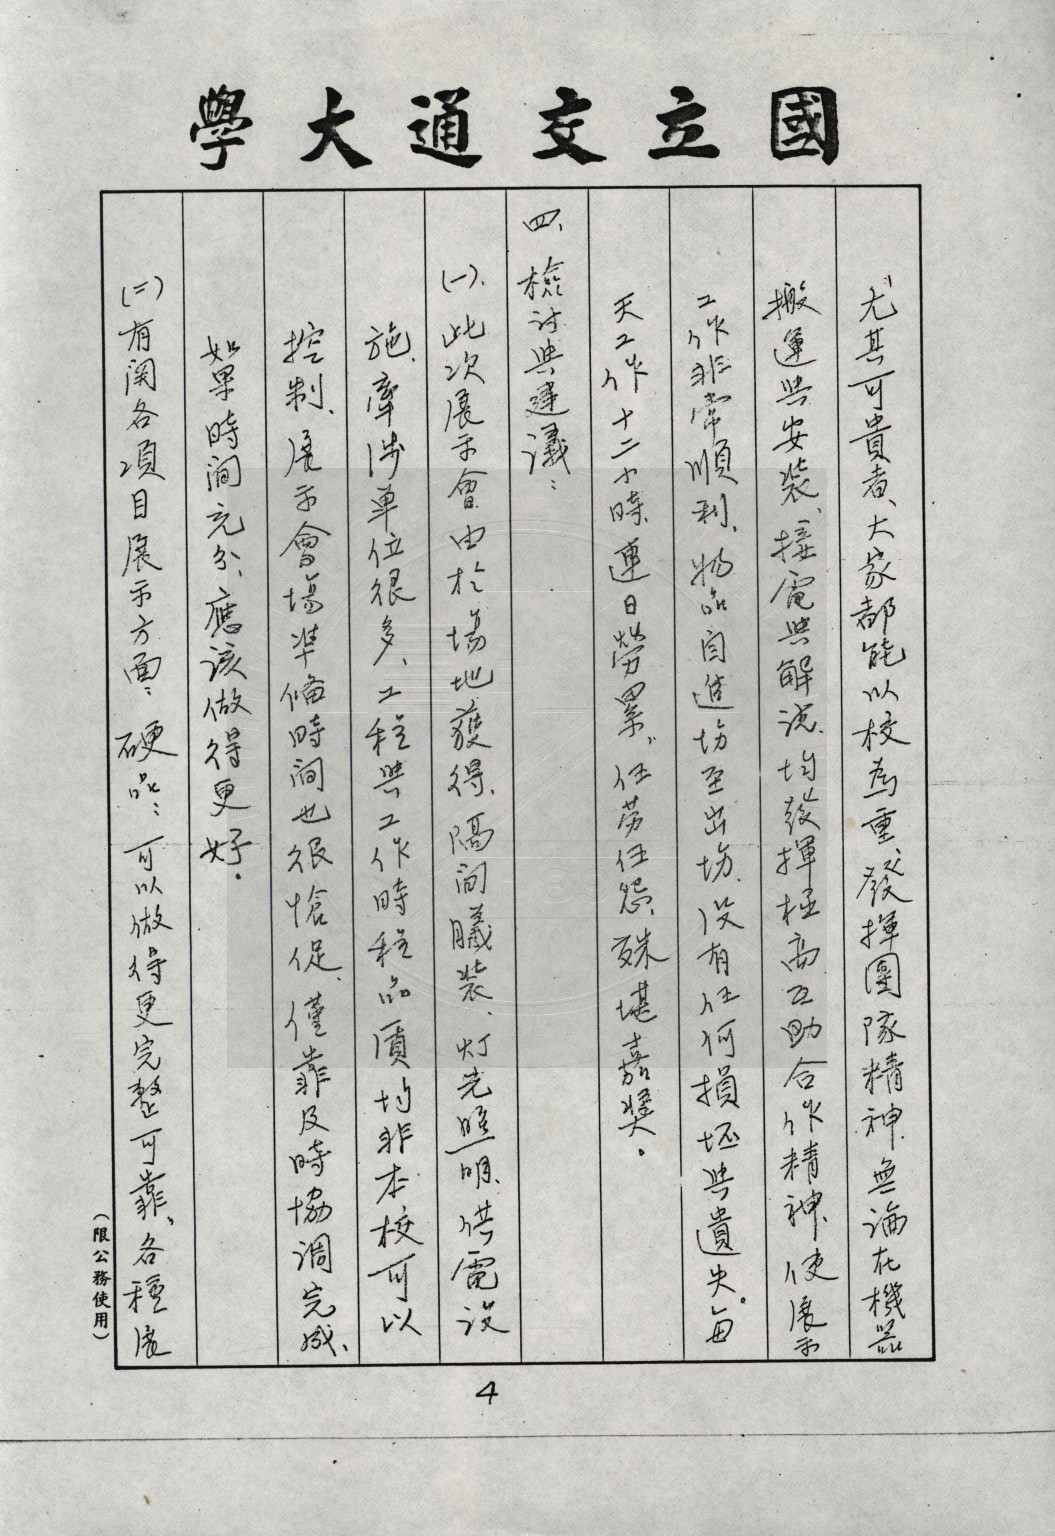 國立交通大學
尤其可貴者、大家都能以校為重、發揮團隊精神、無論在機器
搬運與安裝、接電與解說、均發揮極高互助合作精神、使展示
工作非常順利、物品自進場至出場、沒有任何損坯與遺失。每
天工作十二小時、連日勞累、任劳任怨、殊堪嘉獎。
四、檢討與建議：
(一)、此次展示會由於場地獲得、隔间議装、灯光照明、供電设
施、牽涉单位很多、工程與工作時程品质均非本校可以
控制、展示會場準備時间也很愴促、僅靠及時協调完成、
如果時间充分、應該做得更好。
(二)有関各項目展示方面：硬品：可以做得更完整可靠、各種展
(限公務使用)
4